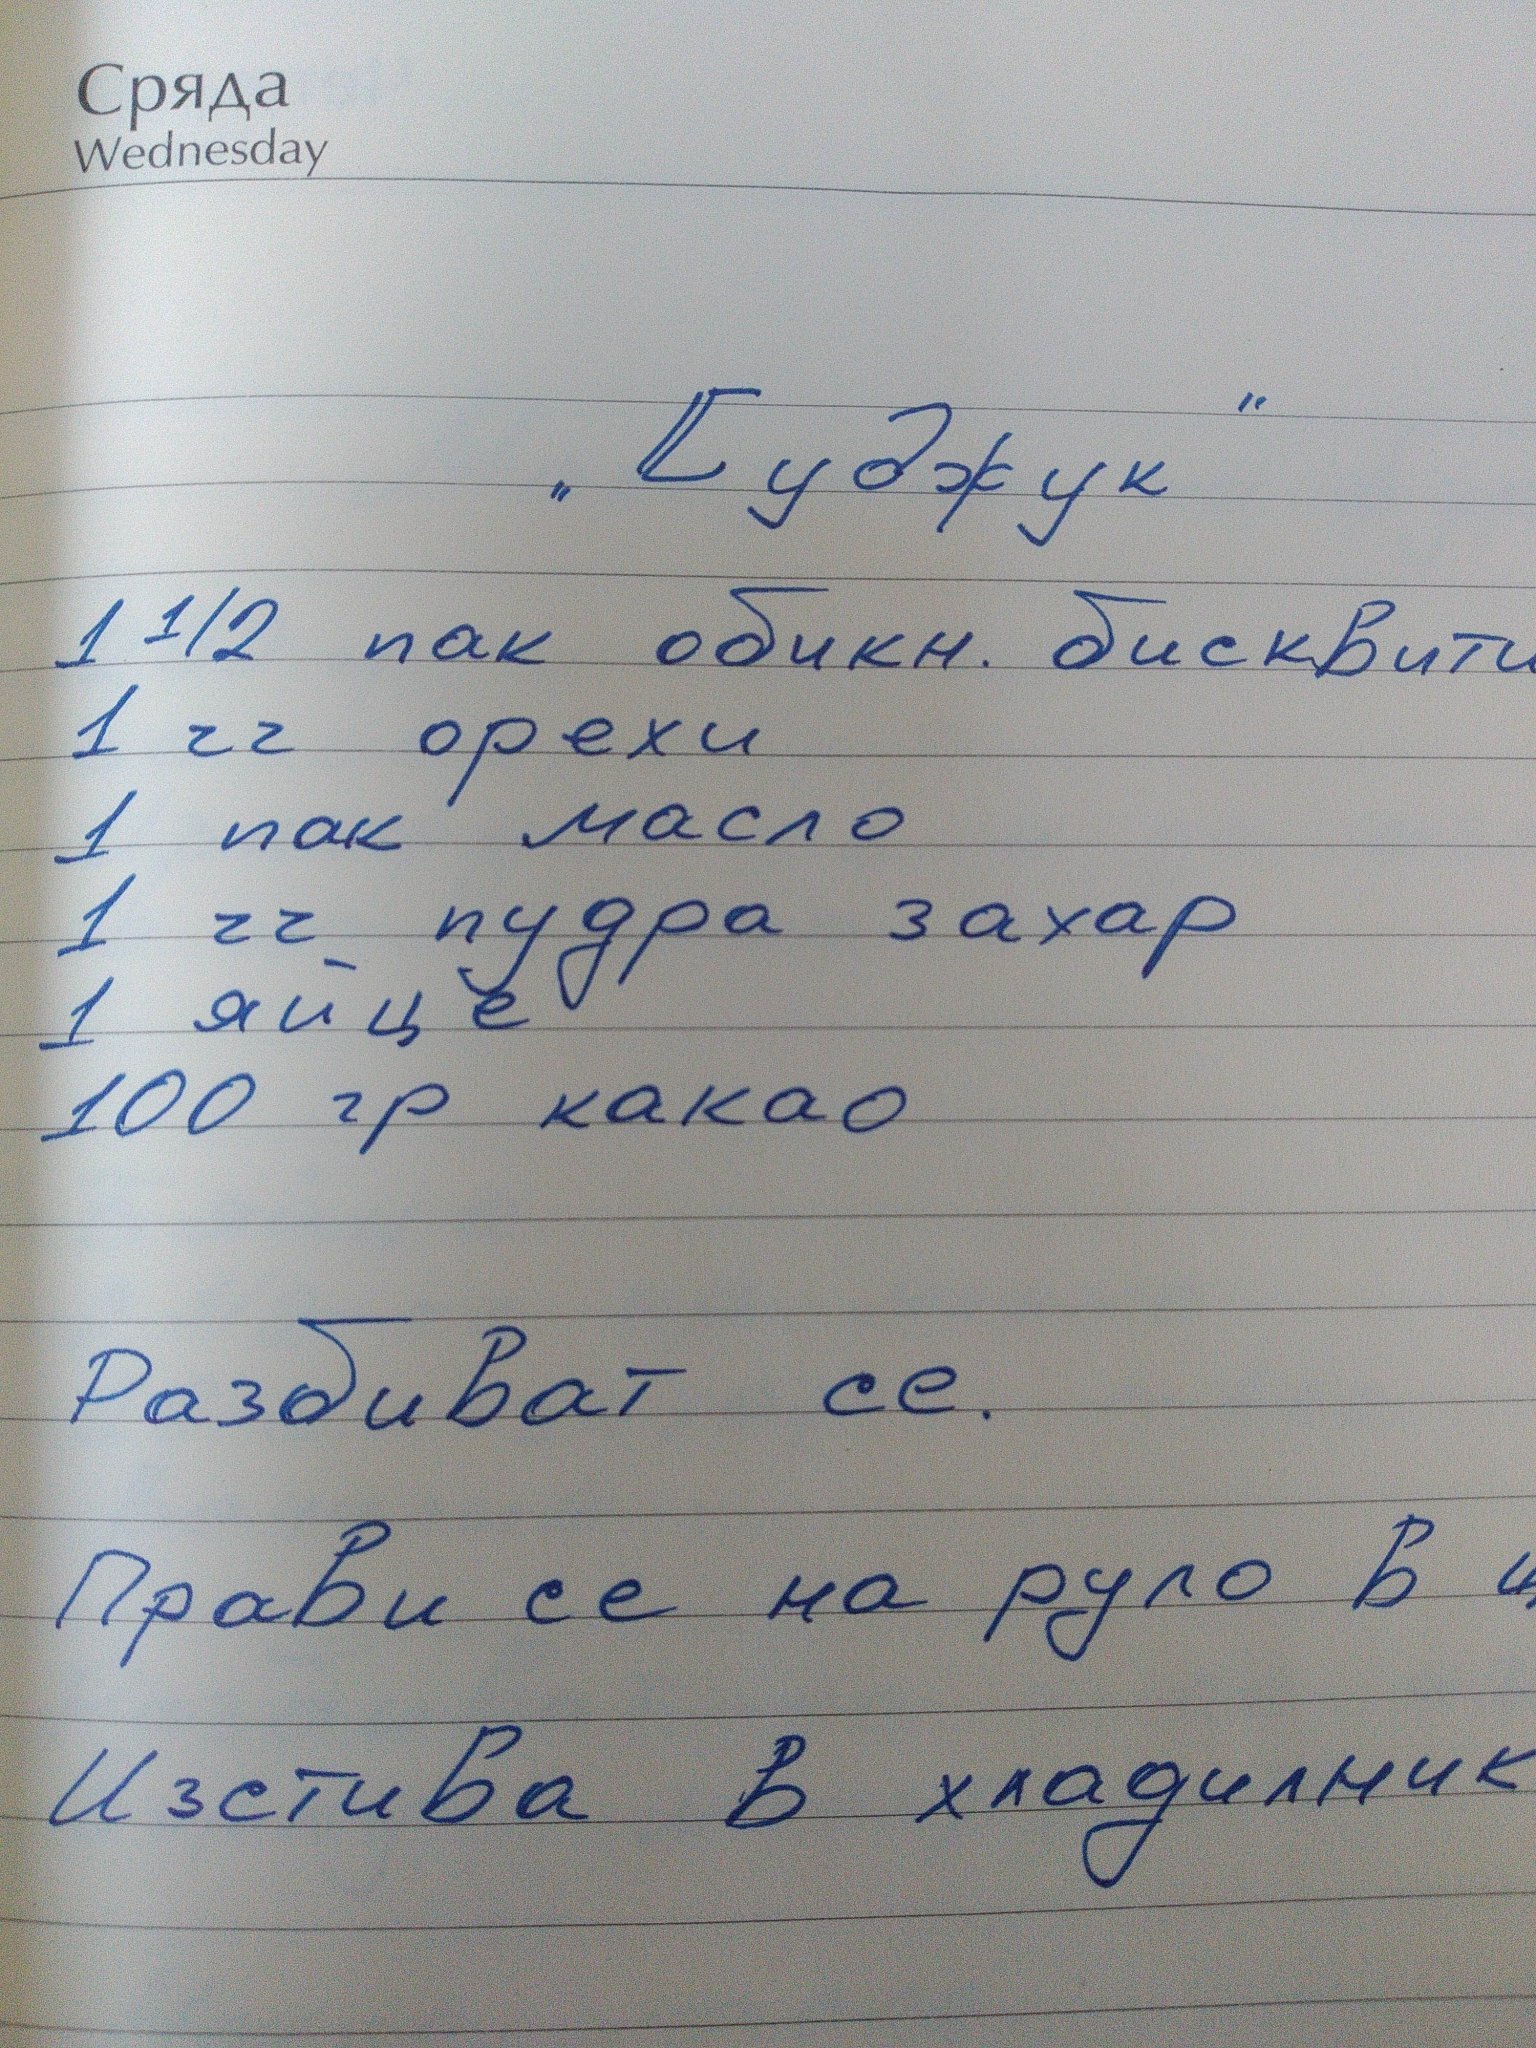 Сряда
Wednesday
„Суджук“
1 1/2 пак обикн. бисквити
1 чг орехи
1 пак масло
1 чг пудра захар
1 яйце
100 гр какао
Разбиват се.
Прави се на руло в
Изстива в хладилник